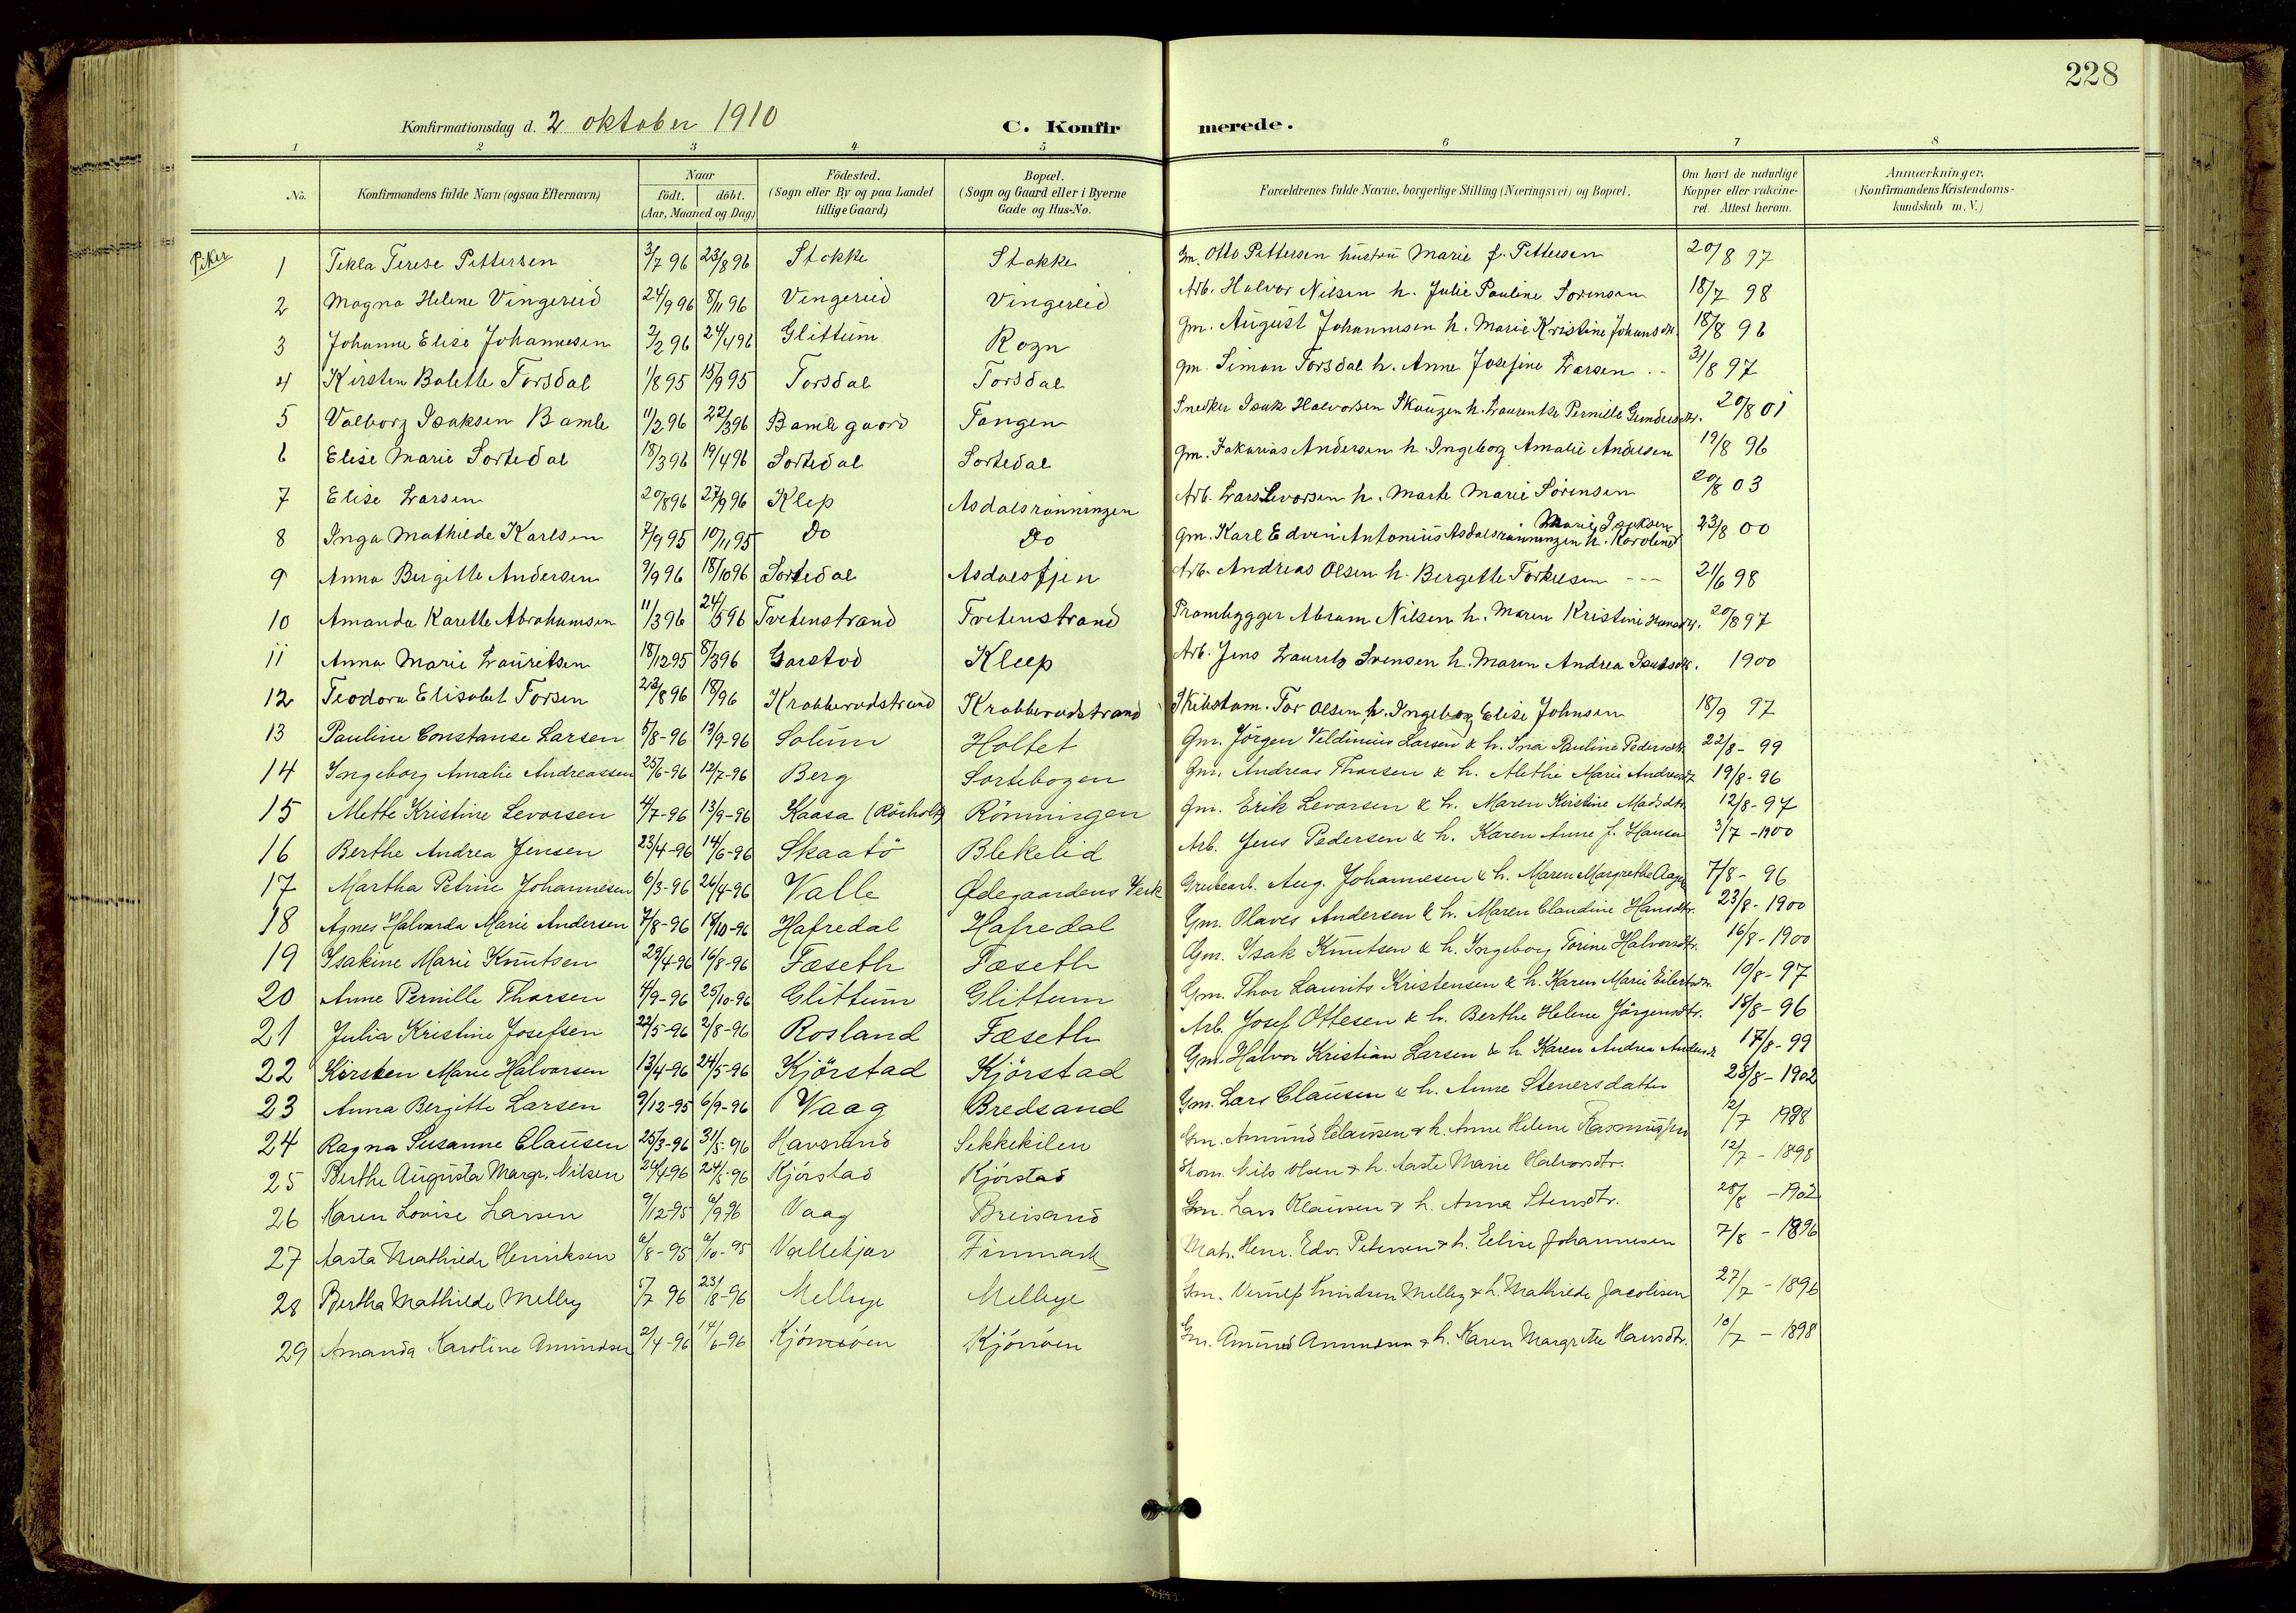 228
Konfirmationsdag d. 2 oktober 1910 C. Konfirmerede.
1 2 3 4 5 6 7 8
No. Konfirmandens fulde Navn (ogsaa Efternavn) Naar födt. döbt. (Aar, Maaned og Dag) Födested. (Sogn eller By og paa Landet tillige Gaard) Bopæl. (Sogn og Gaard eller i Byerne Gade og Hus-No. Forældrenes fulde Navne, borgerlige Stilling (Næringsvei) og Bopæl. Om havt de naturlige Kopper eller vakcineret. Attest herom. Anmærkninger. (Konfirmandens Kristendomskundskab m. V.)
Piker
1 Tekla Terese Pettersen 3/7 96 23/8 96 Stokke Stokke Gm. Otto Pettersen hustru Marie f. Pettersen 20/8 97
2 Magna Helene Vingereid 24/9 96 8/11 96 Vingereid Vingereid Arb. Halvor Nilsen h. Julie Pauline Sorensen 18/7 98
3 Johanne Elise Johannesen 3/2 96 24/4 96 Glittum Rogn Gm. August Johannesen h. Marie Kristine Johansdtr. 18/8 96
4 Kirsten Bolette Torsdal 1/8 95 15/9 95 Torsdal Torsdal Gm. Simon Torsdal h. Anne Josefine Larsen 31/8 97
5 Valborg Isaksen Bamle 11/2 96 22/3 96 Bamle gaard Tangen Snedker Isak Halvorsen Skaugen h. Laurentze Pernille Gundersdtr. 20/8 01
6 Elise Marie Sortedal 18/3 96 19/4 96 Sortedal Sortedal Gm. Zakarias Andersen h. Ingeborg Amalie Andersen 19/8 96
7 Elise Larsen 20/8 96 27/9 96 Klep Asdalsrønningen Arb. Lars Levorsen h. Marte Marie Sörensen 20/8 03
8 Inga Mathilde Karlsen 7/9 95 10/11 95 Do Do Gm. Karl Edvin Antonius Asdalsrønningen h. Karoline Marie Isaksen 23/8 00
9 Anna Bergitte Andersen 9/9 96 18/10 96 Sortedal Asdalstjen Arb. Andreas Olsen h. Bergette Torkelsen --- 21/6 98
10 Amanda Karette Abrahamsen 11/3 96 24/5 96 Tvetenstrand Tvetenstrand Prambygger Abram Nilsen h. Maren Kristine Hansdtr. 20/8 97
11 Anna Marie Lauritsen 18/12 95 8/3 96 Garstad Kleep Arb. Jens Lauritz Svensen h. Maren Andrea Isaksdtr. 1900
12 Teodora Elisabet Torsen 23/8 96 18/96 Krabberødstrand Krabberødstrand Skibstøm. Tor Olsen h. Ingeborg Elise Johnsen 18/9 97
13 Pauline Constanse Larsen 5/8-96 13/9-96 Solum Holtet Gm. Jörgen Veldinius Larsen & h. Ina Pauline Pedersdtr. 22/8-99
14 Ingeborg Amalie Andreassen 25/6-96 12/7-96 Berg Sortebogen Gm. Andreas Thorsen & h. Alethe Marie Andersdtr 19/8-96
15 Mette Kristine Levorsen 4/7-96 13/9-96 Kaasa (Rörholt) Rönningen Gm. Erik Levorsen & h. Maren Kirstine Madsdtr 12/8-97
16 Berthe Andrea Jensen 23/4-96 14/6-96 Skaatö Blekelid Arb. Jens Pedersen & h. Karen Anne f. Hansen 3/7-1900
17 Martha Petrine Johannesen 6/3-96 26/4-96 Valle Ødegaardens Verk Grubearb. Aug. Johannesen & h. Maren Margrethe Aagn 7/8-96
18 Agnes Halvarda Marie Andersen 7/8-96 18/10-96 Hafredal Hafredal Gm. Olaves Andersen & h. Maren Claudine Hansdtr. 23/8-1900
19 Isakine Marie Knutsen 29/4-96 16/8-96 Fæseth Fæseth Gm. Isak Knutsen & h. Ingeborg Torine Halvorsdtr. 16/8-1900
20 Anne Pernille Thorsen 4/9-96 25/10-96 Glittum Glittum Gm. Thor Laurits Kristensen & h. Karen Marie Eilertsdtr. 10/8-97
21 Julia Kristine Josefsen 22/5-96 2/8-96 Rosland Fæseth Arb. Josef Ottesen & h. Berthe Helene Jörgensdtr. 18/8-96
22 Kirsten Marie Halvorsen 13/4-96 24/5-96 Kjörstad Kjörstad Gm. Halvor Kristian Larsen & h. Karen Andrea Andersdtr 17/8-99
23 Anna Bergitte Larsen 9/12-95 6/9-96 Vaag Bredsand Gm. Lars Clausen & h. Anne Stenersdatter 28/8-1902
24 Ragna Susanne Clausen 25/3-96 31/5-96 Havsund Sekkekilen Gm. Amund Clausen & h. Anne Helene Rasmussen 12/7 1898
25 Berthe Augusta Margr. Nilsen 26/4-96 24/5-96 Kjörstad Kjörstad Skom. Nils Olsen & h. Aaste Marie Halvorsdtr. 12/7-1898
26 Karen Lovise Larsen 9/12-95 6/9 96 Vaag Breisand Gm. Lars Klausen & h. Anna Stensdtr. 28/8-1902
27 Aasta Mathilde Henriksen 6/8-95 6/10-95 Vallekjær Finmark Matr. Henr. Edv. Petersen & h. Elise Johannesen 7/8-1896
28 Bertha Mathilde Melby 5/7 96 23/8-96 Melbye Melbye Gm. Knudsen Melby & h. Mathilde Jacobsen 27/7-1896
29 Amanda Karoline Amundsen 2/4-96 14/6-96 Kjönöen Kjönöen Gm. Amund Amundsen & h. Karen Margrethe Hansdtr. 10/7-1898